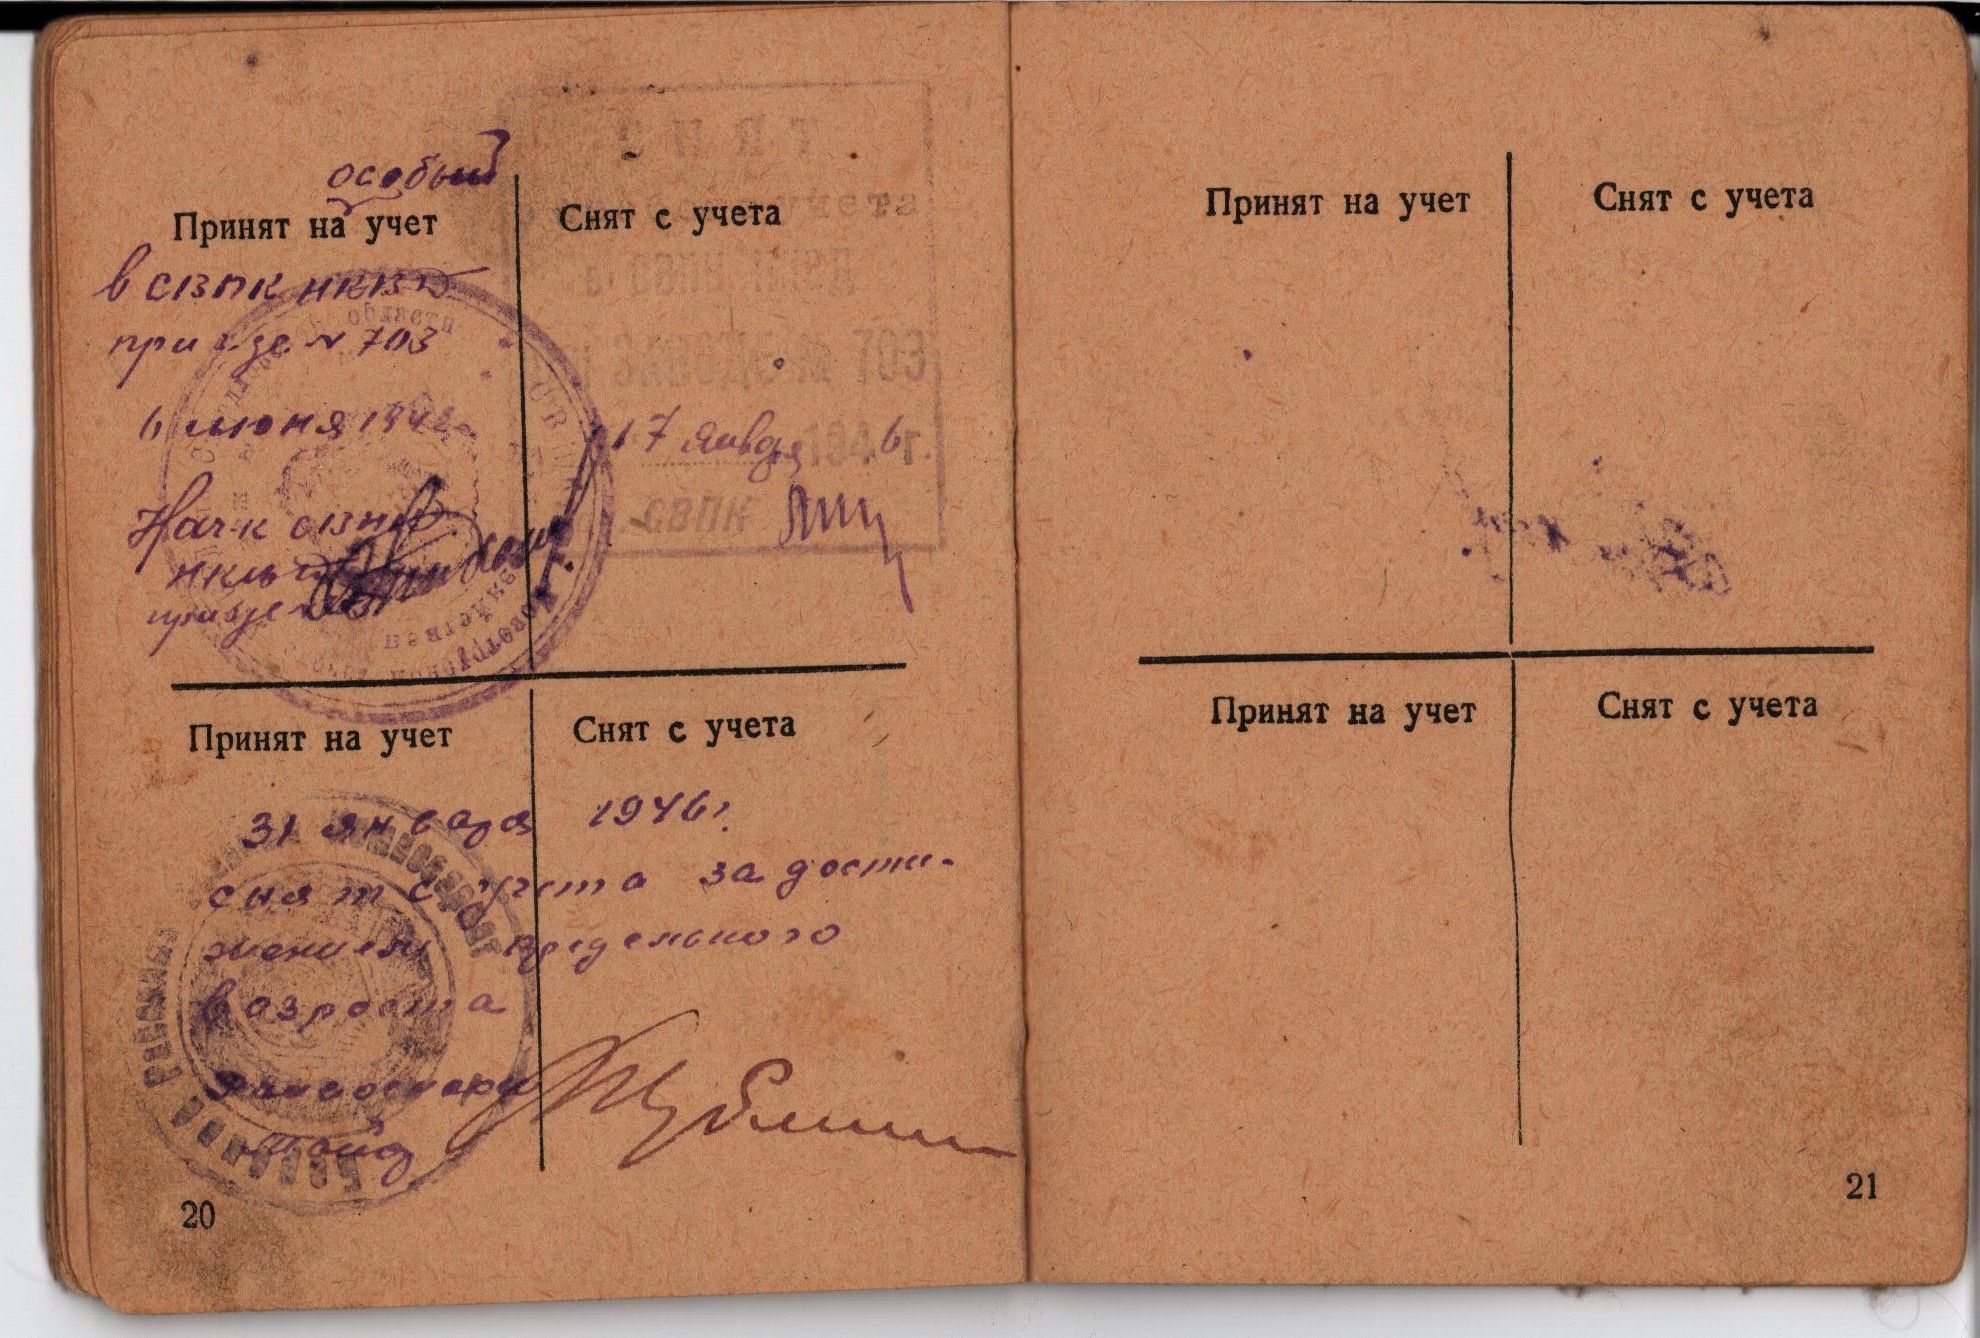 особый
Принят на учет
в СВПК НКВД
при з-де № 703
6 июня 194
Нач-к СВПК
НКВД
при з-де
области
СВПК
Снят с учета
СНЯТ
учета
в СВПК НКВД
ЗАВОДЕ № 703
17 января 1946 г.
СВПК
Принят на учет
Снят с учета
31 января 1946 г.
снят с учета за дости-
жением предельного
возроста
20
Принят на учет
Снят с учета
Принят на учет
Снят с учета
21